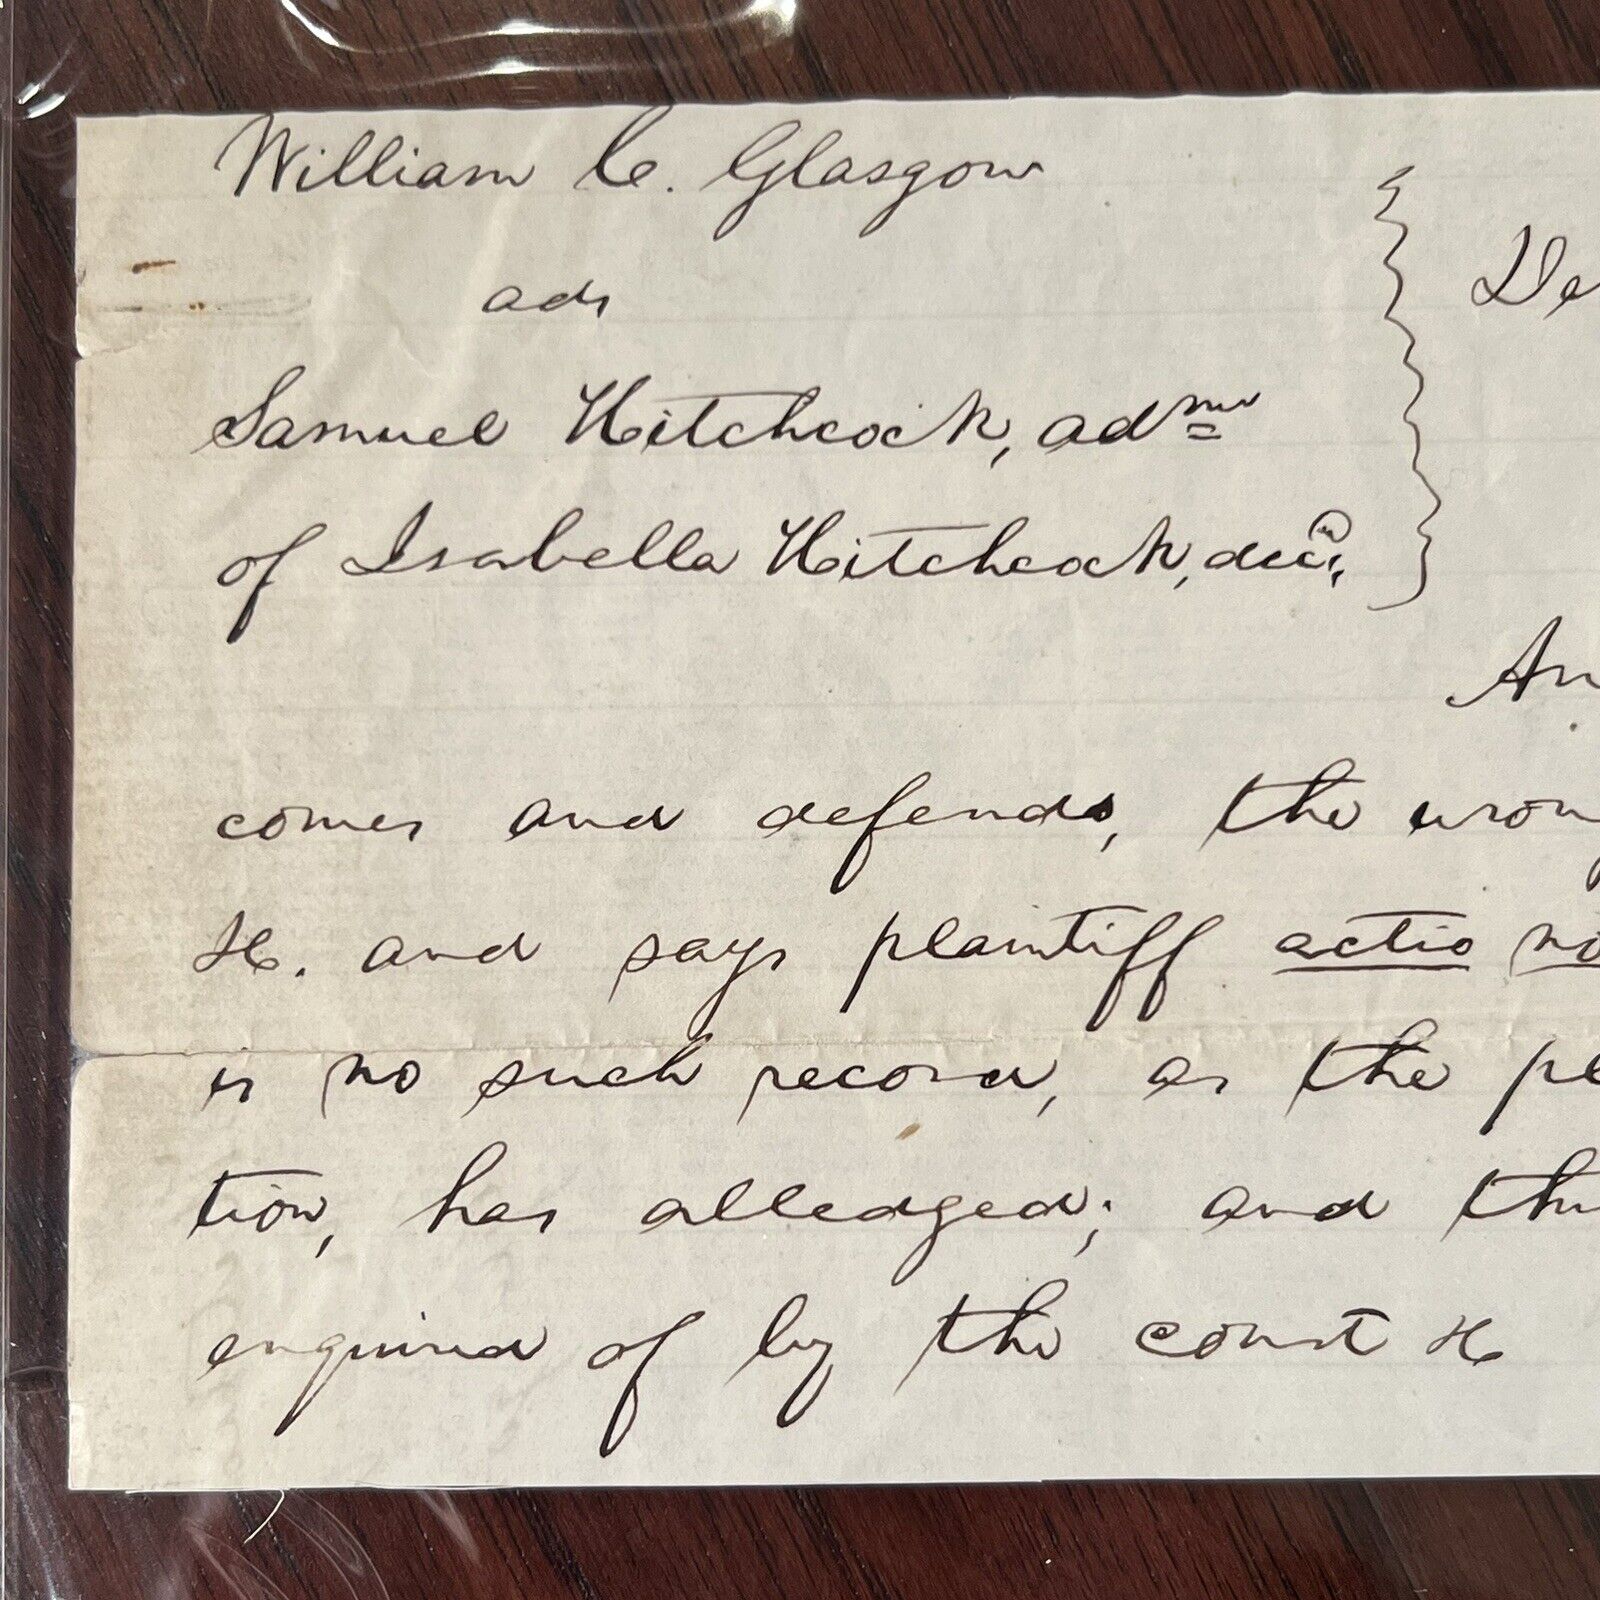 William C. Glasgow
ads
De
Samuel Hitchcock, admr
of Isabella Hitchcock, decd,
An
comes and defends, the wrong
&c. and says plaintiff actio no
is no such record, as the pl
tion, has alledged; and th
enquired of by the court &c